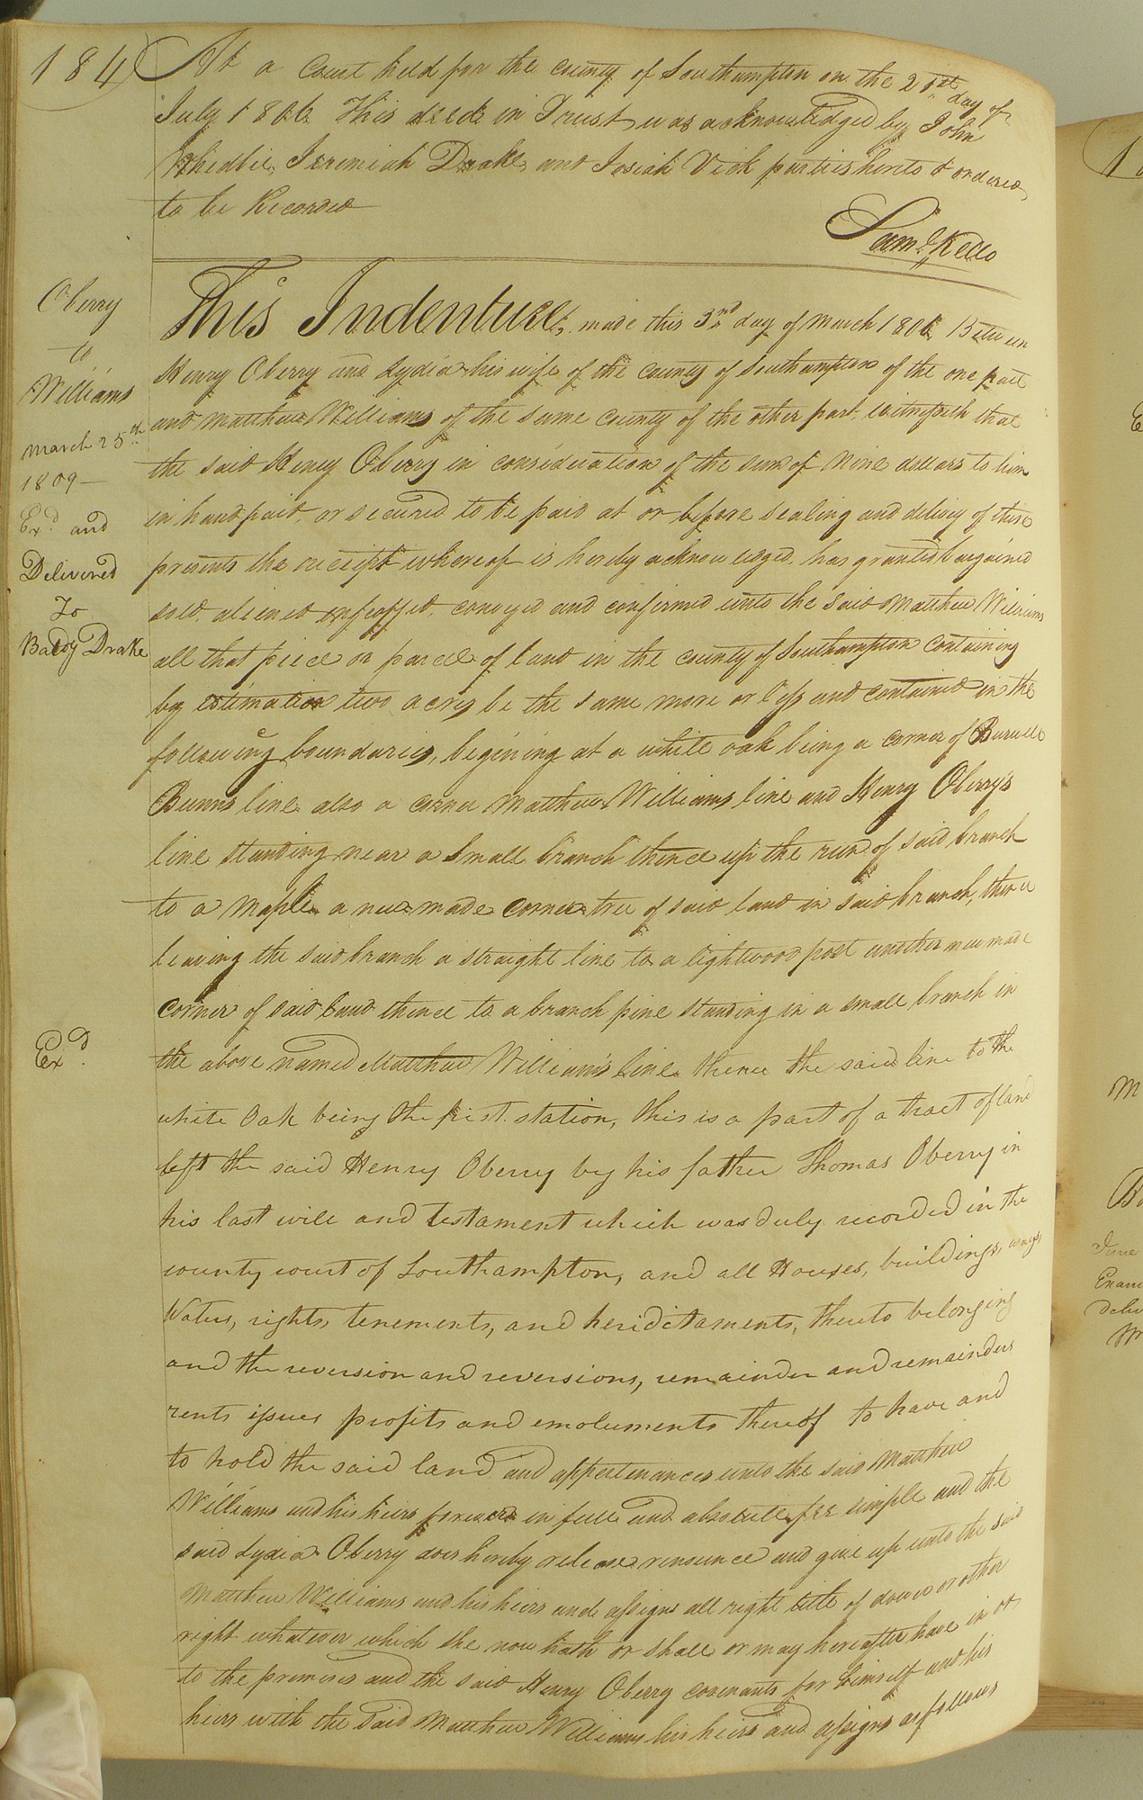 184
At a Court held for the county of Southampton on the 21st day of
July 1806 This deed in Trust was acknowledged by John
Whedbie, Jeremiah Drake and Josiah Vick parties hereto & ordered
to be Recorded
Saml. Kello
Oberry
to
Williams
March 25th
1809
Exd. and
Delivered
To
Bardy Drake
This Indenture, made this 3rd day of March 1806 Between
Henry Oberry and Lydia his wife of the County of Southampton of the one part
and Matthew Williams of the same county of the other part witnesseth that
the said Henry Oberry in consideration of the sum of Nine dollars to him
in hand paid, or secured to be paid at or before sealing and delivy of these
presents the receipt whereof is hereby acknowledged, has granted bargained
sold, aliened enfeoffed, conveyed and confirmed unto the said Matthew Williams
all that piece or parcel of land in the county of Southampton containing
by estimation two acres be the same more or less and contained in the
following boundaries, begining at a white oak being a corner of Burwell
Bunns line also a corner Matthew Williams line and Henry Oberry's
line standing near a Small branch thence up the run of said branch
to a Maple a new made corner tree of said land in said branch, thence
leaving the said branch a straight line to a lightwood post another new made
corner of said land thence to a branch pine standing in a small branch in
Exd.
the above named Matthew William's line thence the said line to the
white Oak being the first station, this is a part of a tract of land
left the said Henry Oberry by his father Thomas Oberry in
his last will and testament which was duly recorded in the
county court of Southampton, and all Houses, buildings, ways,
Waters, rights, tenements, and heriditaments, thereto belonging
and the reversion and reversions, remainder and remainders
rents issues profits and emoluments thereof to have and
to hold the said land and appertenances unto the said Matthew
Williams and his heirs forever in full and absolute fee simple and the
said Lydia Oberry does hereby release renounce and give up unto the said
Matthew Williams and his heirs and assigns all right title of dower or other
right whatever which she now hath or shall or may hereafter have in or
to the premises and the said Henry Oberry covenants for himself and his
heirs with the said Matthew Williams his heirs and assigns as follows